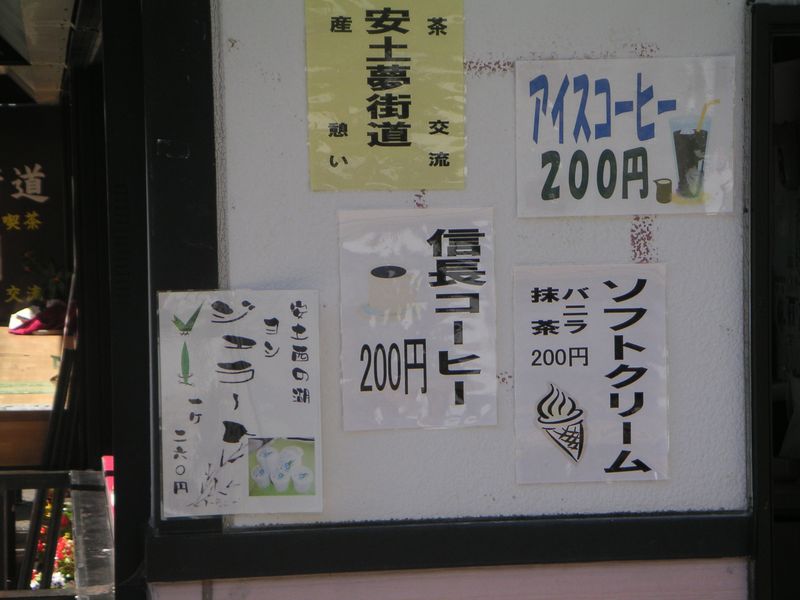 茶 交流
安土夢街道
産 憩い
アイスコーヒー
200円
信長コーヒー
200円
ソフトクリーム
バニラ
抹茶
200円
安土西の湖
ヨシ
ジェラート
一ケ 二六〇円
道
喫茶
交流